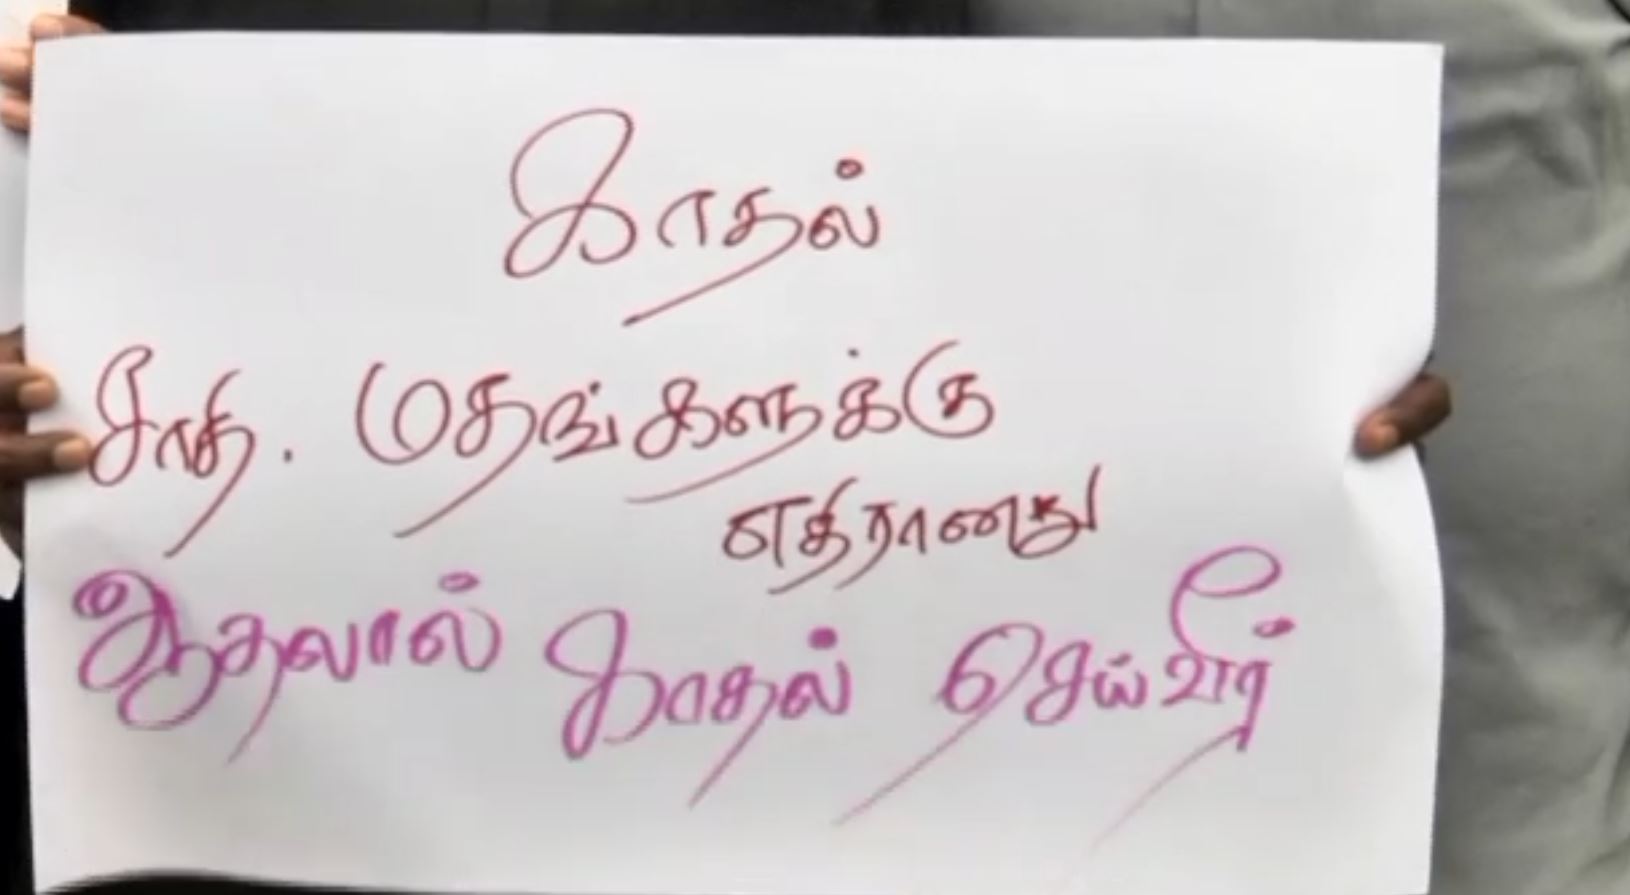 காதல்
சாதி. மதங்களுக்கு
எதிரானது
ஆதலால் காதல் செய்வீர்